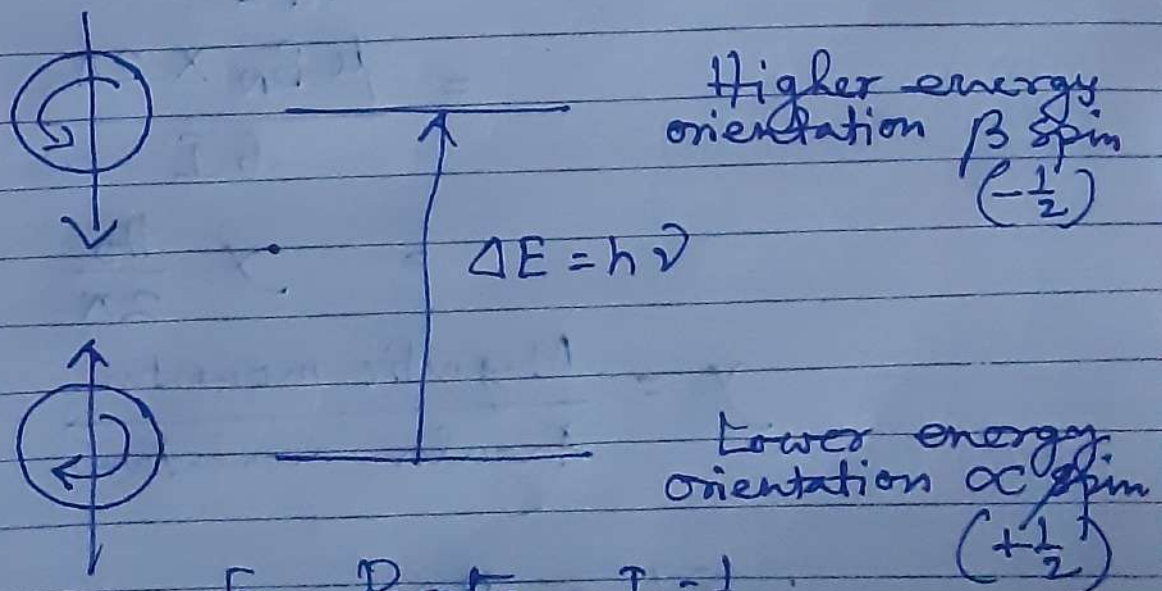 Higher energy
orientation β spin
(-1/2)
ΔE = hν
Lower energy
orientation α spin
(+1/2)